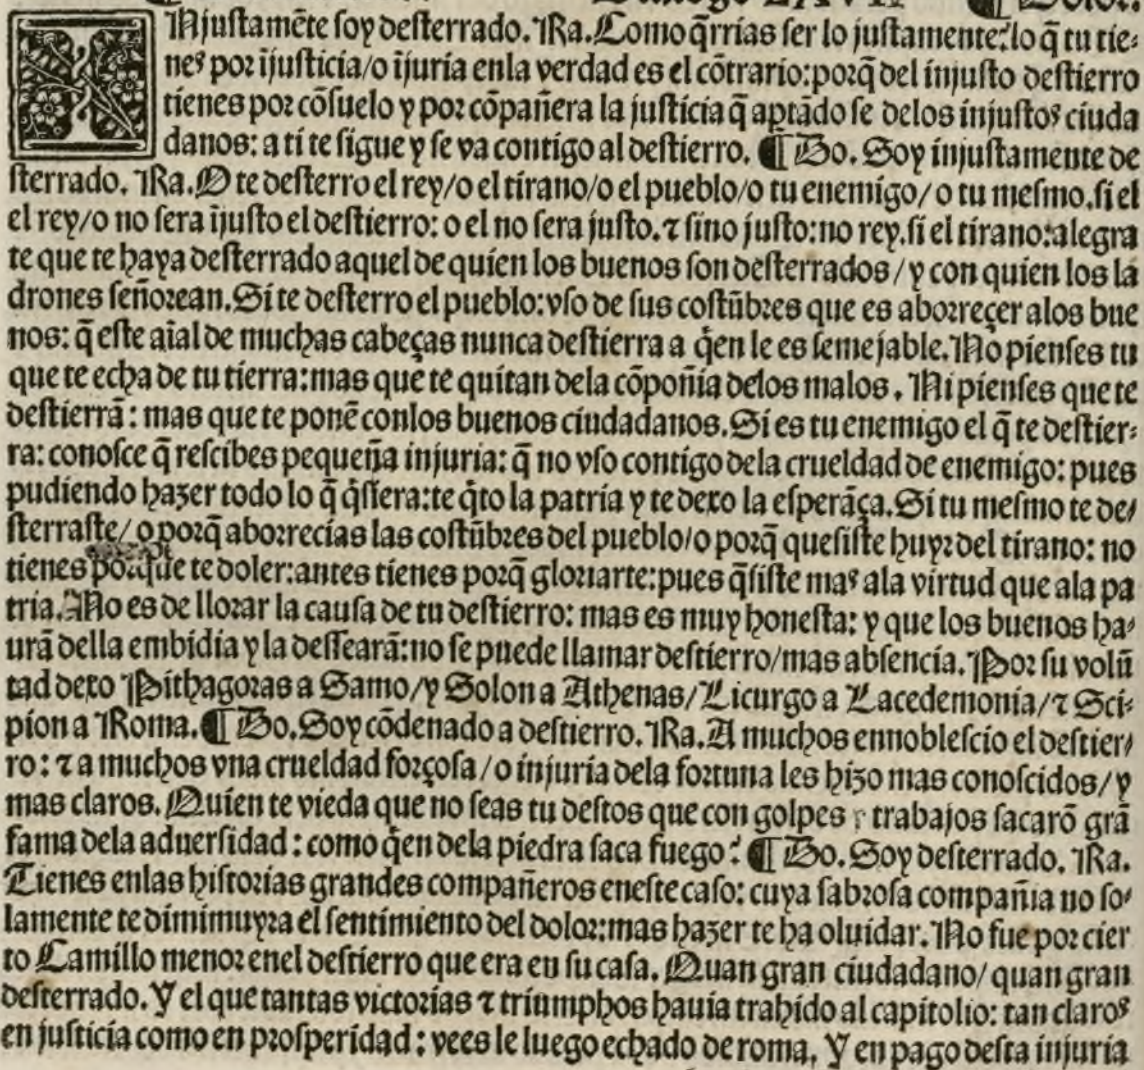 Dialogo LXVII ¶ Dolor.
INjustamẽte soy desterrado. Ra. Como q̃rrias ser lo justamente? lo q̃ tu tie-
nes por ĩjusticia/o ĩjuria enla verdad es el cõtrario: porq̃ del injusto destierro
tienes por cõsuelo y por cõpañera la justicia q̃ aptãdo se delos injustos ciuda
danos: a ti te sigue y se va contigo al destierro. ¶ Do. Soy injustamente de
sterrado. Ra. O te desterro el rey/o el tirano/o el pueblo/o tu enemigo/o tu mesmo. si el
el rey/o no sera ĩjusto el destierro: o el no sera justo. ⁊ sino justo: no rey. si el tirano: alegra
te que te haya desterrado aquel de quien los buenos son desterrados/y con quien los la
drones señorean. Si te desterro el pueblo: vso de sus costũbres que es aborreçer alos bue
nos: q̃ este aĩal de muchas cabeças nunca destierra a q̃en le es semejable. No pienses tu
que te echa de tu tierra: mas que te quitan dela cõpoñia delos malos. Ni pienses que te
destierrã: mas que te ponẽ conlos buenos ciudadanos. Si es tu enemigo el q̃ te destier-
ra: conosce q̃ rescibes pequeña injuria: q̃ no vso contigo dela crueldad de enemigo: pues
pudiendo hazer todo lo q̃ q̃siera: te q̃to la patria y te dexo la esperãça. Si tu mesmo te de/
sterraste/o porq̃ aborrecias las costũbres del pueblo/o porq̃ quesiste huyr del tirano: no
tienes porque te doler: antes tienes porq̃ gloriarte: pues q̃siste mas ala virtud que ala pa
tria. No es de llorar la causa de tu destierro: mas es muy honesta: y que los buenos ha/
urã della embidia y la dessearã: no se puede llamar destierro/mas absencia. Por su volũ
tad dexo Pithagoras a Samo/y Solon a Athenas/Licurgo a Lacedemonia/⁊ Sci-
pion a Roma. ¶ Do. Soy cõdenado a destierro. Ra. A muchos ennoblescio el destier/
ro: ⁊ a muchos vna crueldad forçosa/o injuria dela fortuna les hizo mas conoscidos/y
mas claros. Quien te vieda que no seas tu destos que con golpes ⁊ trabajos sacarõ grã
fama dela aduersidad: como q̃en dela piedra saca fuego? ¶ Do. Soy desterrado. Ra.
Tienes enlas historias grandes compañeros eneste caso: cuya sabrosa compañia no so/
lamente te dimimuyra el sentimiento del dolor: mas hazer te ha oluidar. No fue por cier
to Camillo menor enel destierro que era en su casa. Quan gran ciudadano/quan gran
desterrado. Y el que tantas victorias ⁊ triumphos hauia trahido al capitolio: tan claros
en justicia como en prosperidad: vees le luego echado de roma. Y en pago desta injuria